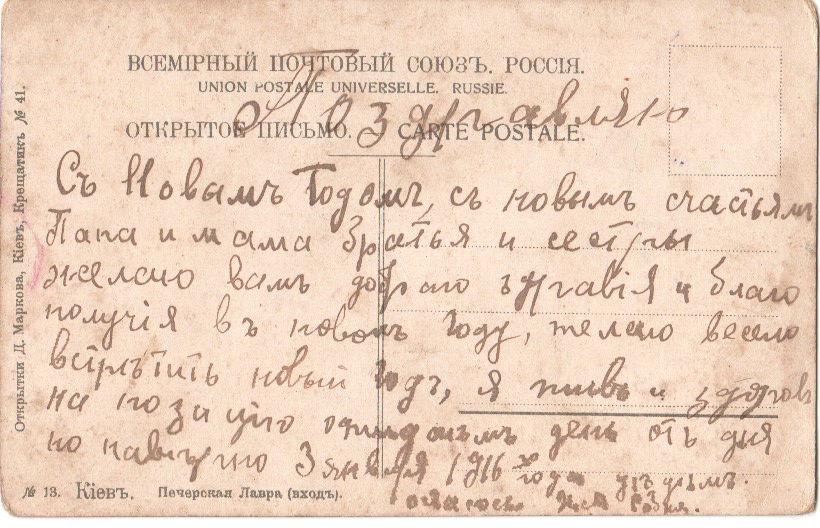 ВСЕМІРНЫЙ ПОЧТОВЫЙ СОЮЗЪ. РОССІЯ.
UNION POSTALE UNIVERSELLE. RUSSIE.
ОТКРЫТОЕ ПИСЬМО. CARTE POSTALE.
Поздравляю
Съ Новамъ Годомъ, съ новымъ счастьямъ
Папа и мама братья и сестры
желаю вамъ добраго здравія и благо
получія въ новомъ Году, желаю весело
встрѣтить новый Годъ, я живъ и здоровъ
на позицію день отъ дня
но 3 января 1916 года
Открытки Д. Маркова, Кіевъ, Крещатикъ № 41.
№ 13. Кіевъ. Печерская Лавра (входъ).